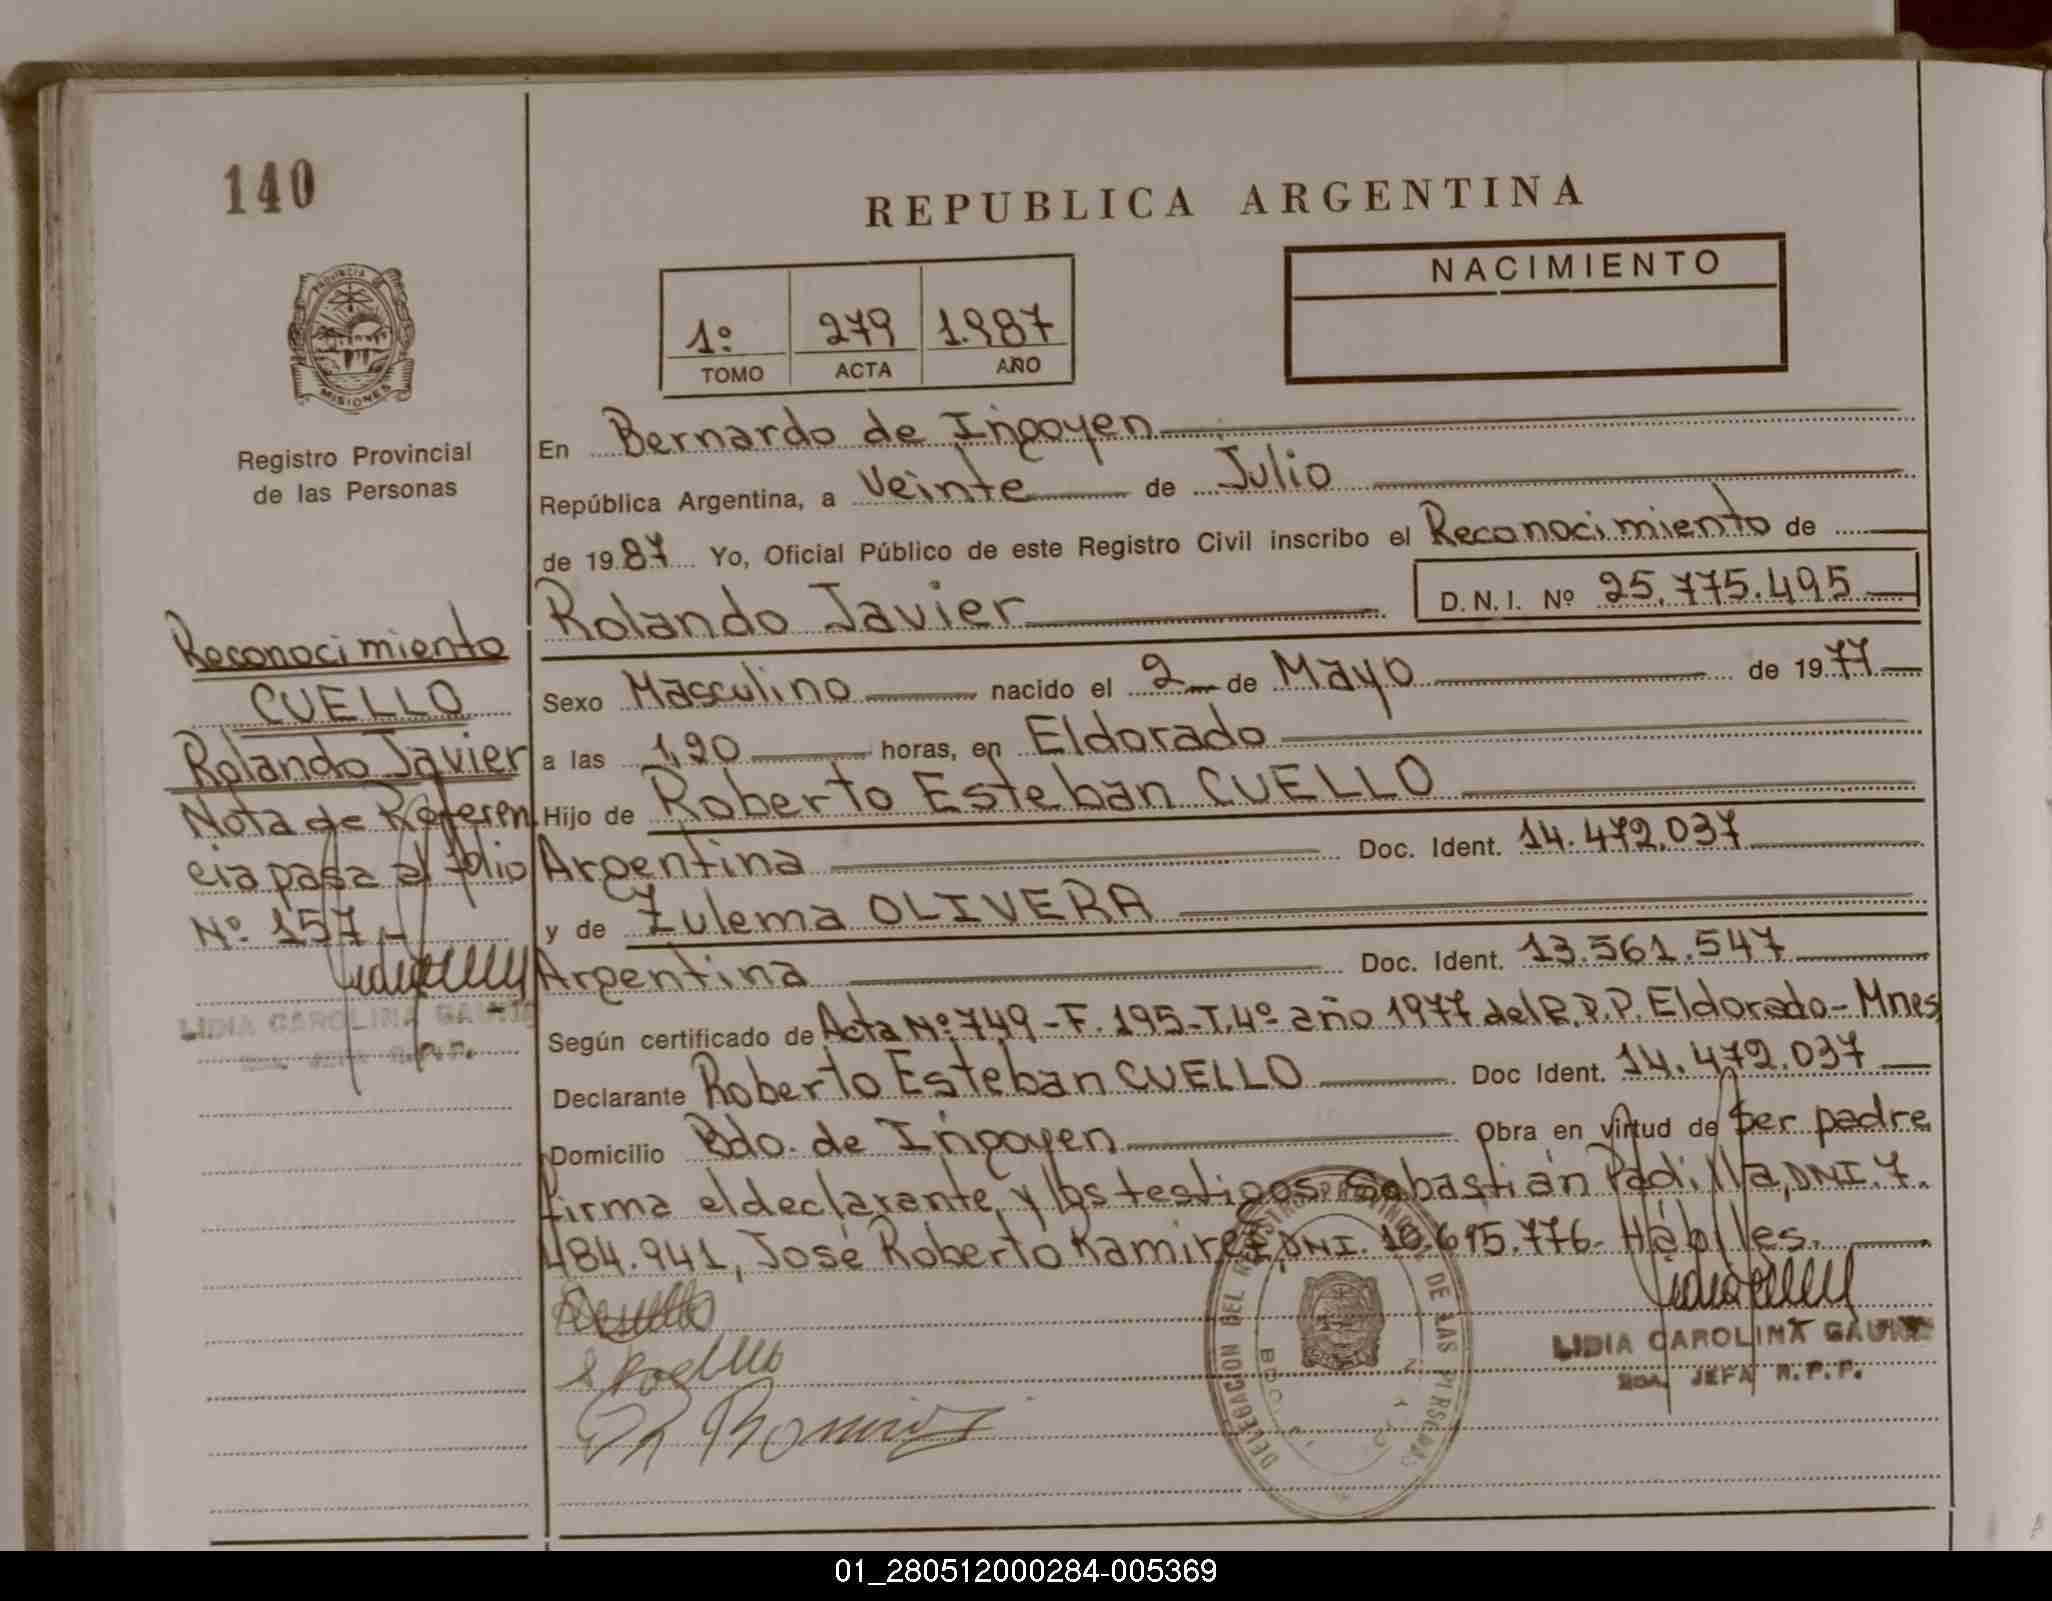 140
REPUBLICA ARGENTINA
PROVINCIA
MISIONES
Registro Provincial
de las Personas
1º 279 1.987
TOMO ACTA AÑO
NACIMIENTO
En Bernardo de Irigoyen
República Argentina, a Veinte de Julio
de 1987 Yo, Oficial Público de este Registro Civil inscribo el Reconocimiento de
Rolando Javier D.N.I. Nº 25.775.495
Sexo Masculino nacido el 2 de Mayo de 1977
a las 1,20 horas, en Eldorado
Hijo de Roberto Esteban CUELLO
Argentina Doc. Ident. 14.472.037
y de Zulema OLIVERA
Argentina Doc. Ident. 13.561.547
Según certificado de Acta Nº 749-F.195-T.4º año 1977 del R.P.P. Eldorado-Mnes
Declarante Roberto Esteban CUELLO Doc Ident. 14.472.037
Domicilio Bdo. de Irigoyen Obra en virtud de Ser padre
firma el declarante y los testigos Sebastián Padilla, DNI. 7.
484.941, José Roberto Ramirez, DNI. 10.695.776- Hábiles.
Reconocimiento
CUELLO
Rolando Javier
Nota de Referen
cia pasa al folio
Nº 157.-
LIDIA CAROLINA
R.P.P.
DELEGACION DEL REGISTRO PROVINCIAL DE LAS PERSONAS
LIDIA CAROLINA
2DA. JEFA R.P.P.
01_280512000284-005369